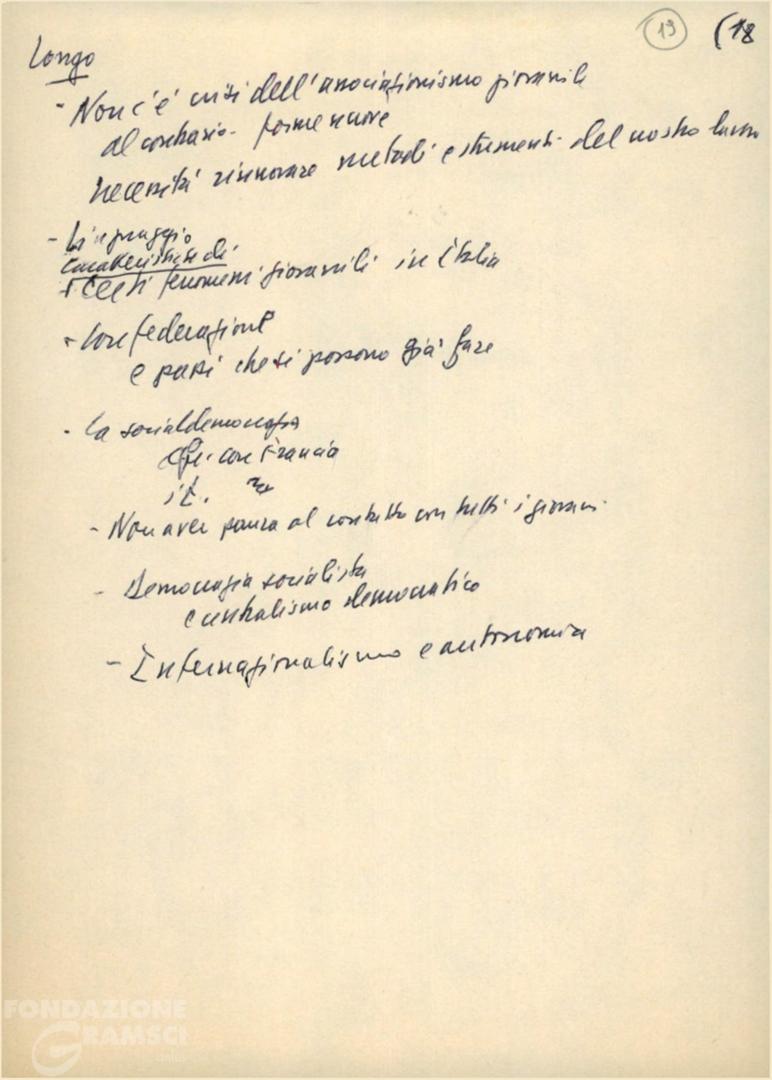 19 (18
Longo
- Non c'è crisi dell'associazionismo giovanile
al contrario - forme nuove
necessità rinnovare metodi e strumenti del nostro lavoro
- Linguaggio
caratteristiche di
fenomeni giovanili in Italia
- Confederazione
e passi che si possono già fare
- La socialdemocrazia
con Francia
it.
- Non aver paura al contatto con tutti i giovani
- Democrazia socialista
e centralismo democratico
- Internazionalismo e autonomia
FONDAZIONE
GRAMSCI